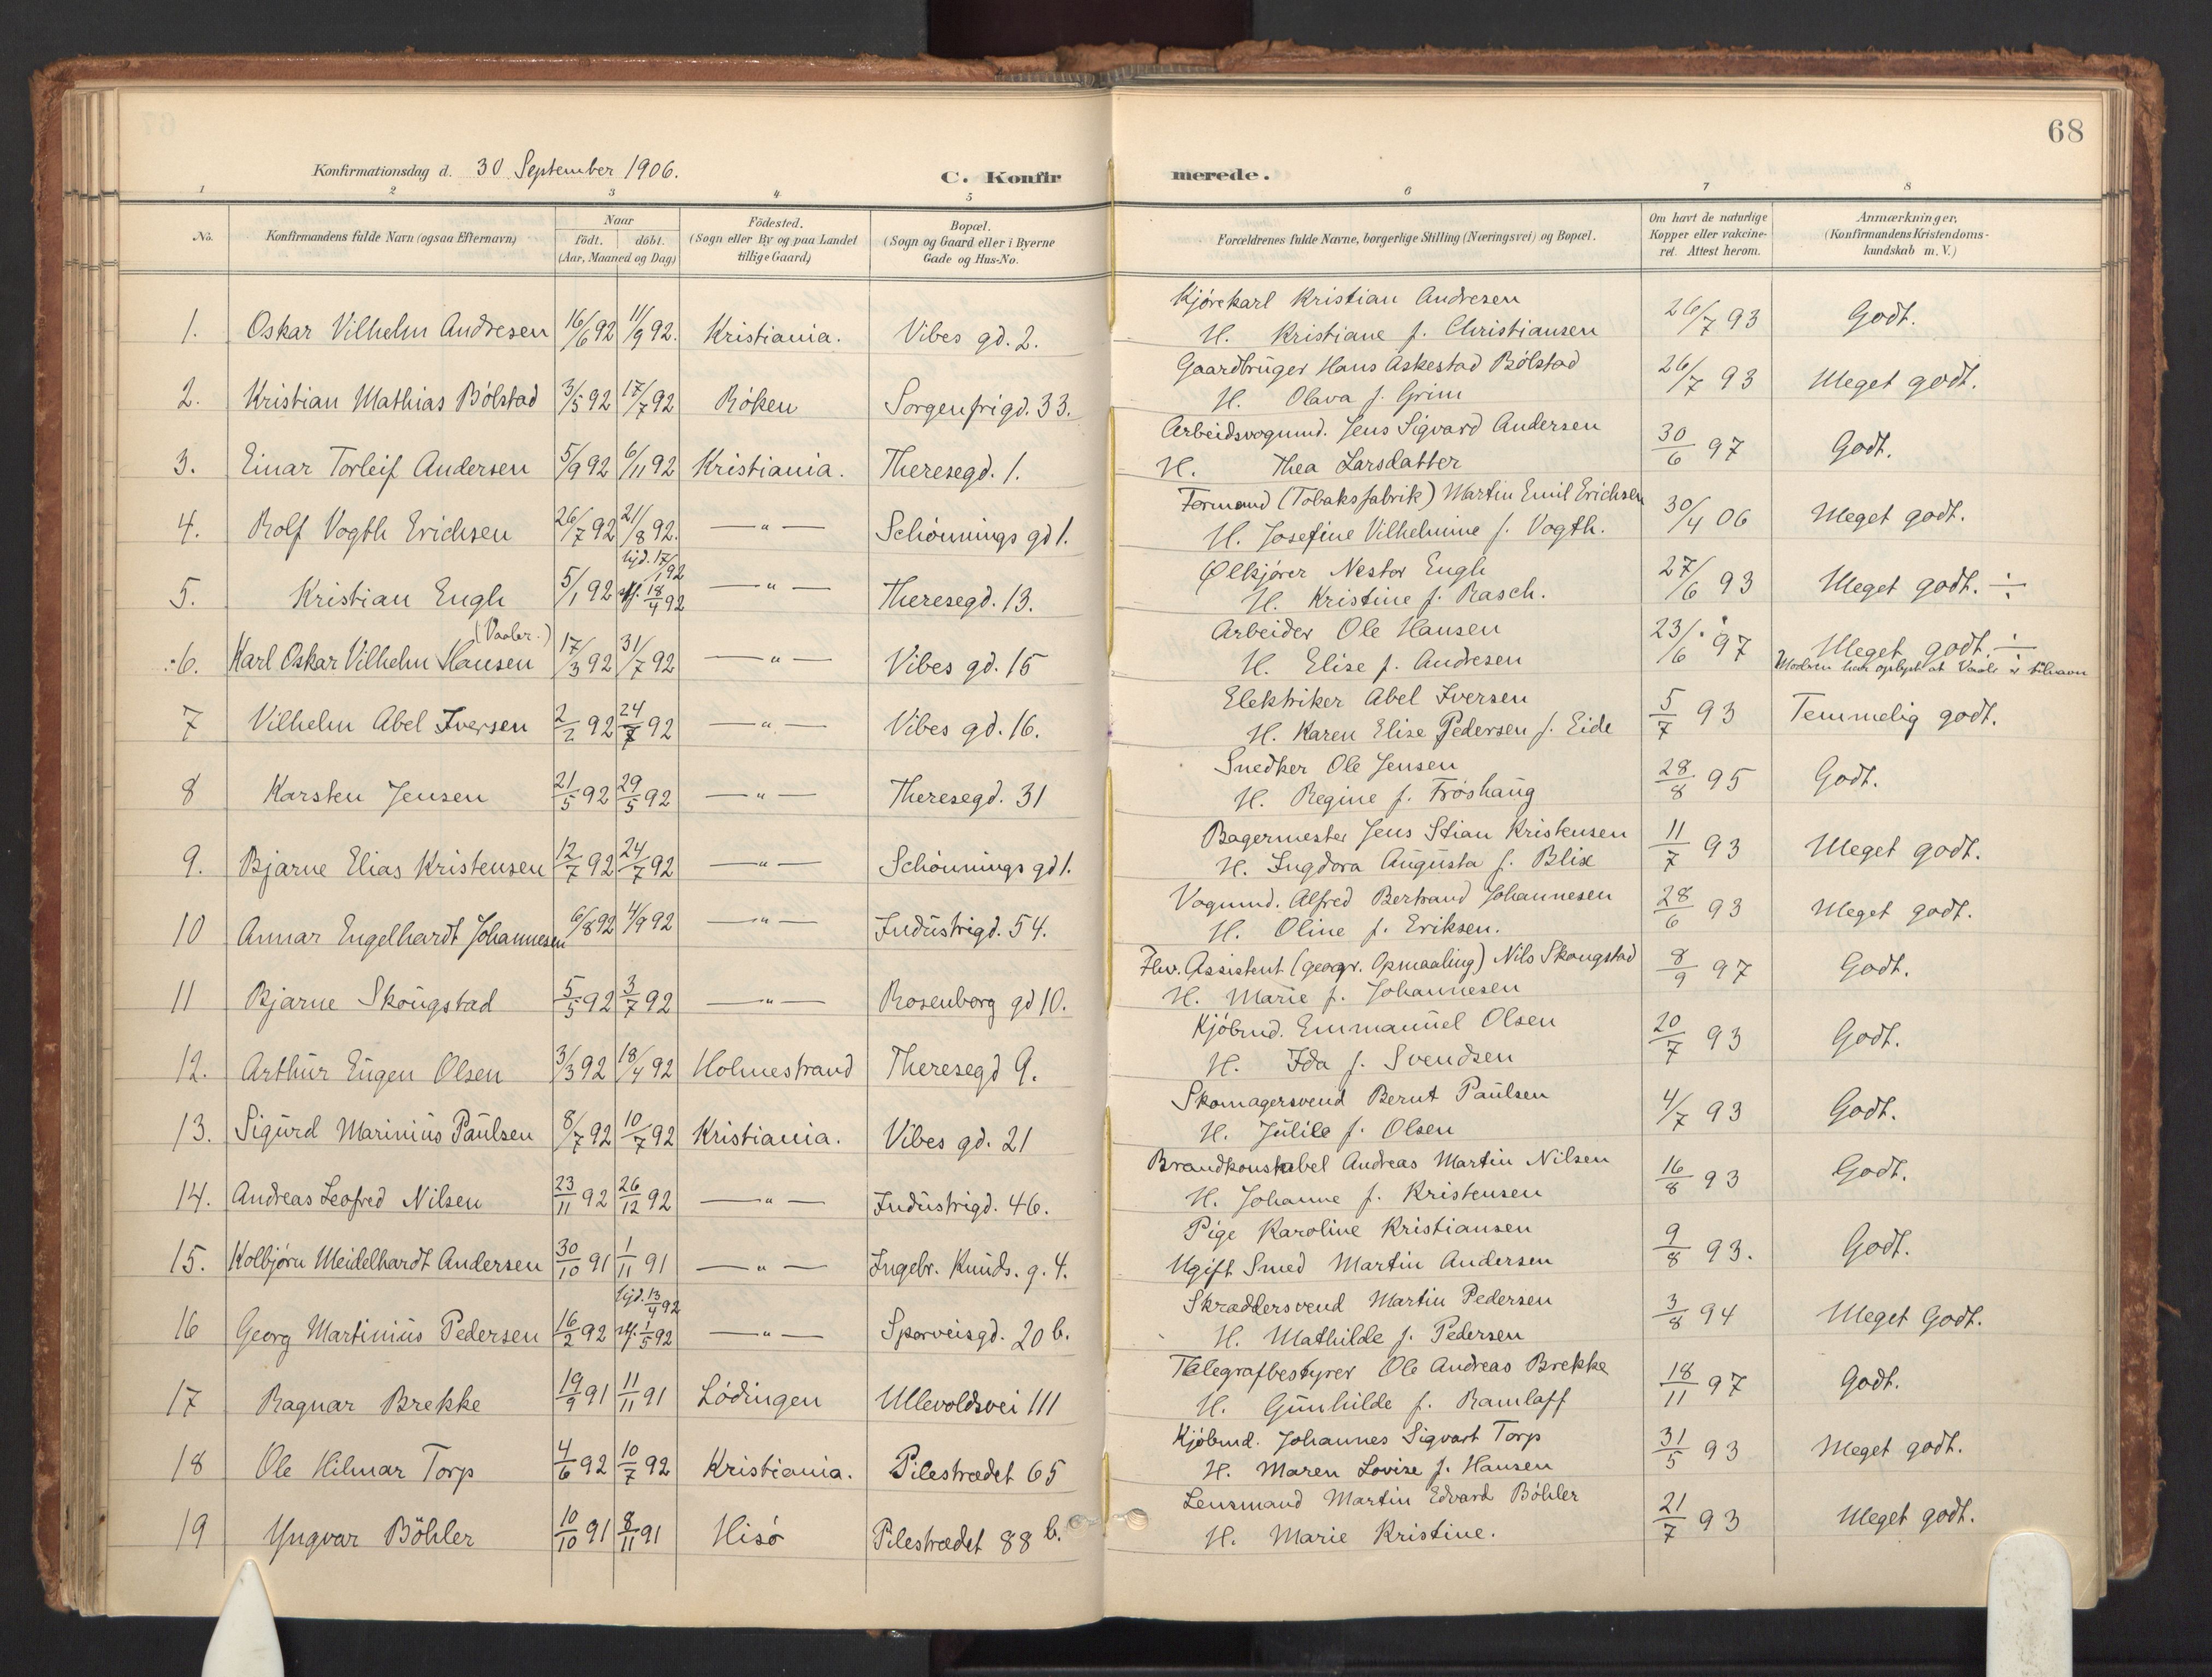 68
Konfirmationsdag d. 30 September 1906.
C. Konfirmerede.
1 2 3 4 5 6 7 8
No.
Konfirmandens fulde Navn (ogsaa Efternavn)
Naar
födt. döbt.
(Aar, Maaned og Dag)
Födested.
(Sogn eller By og paa Landet
tillige Gaard)
Bopæl.
(Sogn og Gaard eller i Byerne
Gade og Hus-No.
Forældrenes fulde Navne, borgerlige Stilling (Næringsvei) og Bopæl.
Om havt de naturlige
Kopper eller vakcine-
ret. Attest herom.
Anmærkninger,
(Konfirmandens Kristendoms-
kundskab m. V.)
1. Oskar Vilhelm Andresen 16/6 92 11/9 92. Kristiania. Vibes gd. 2.
Kjørekarl Kristian Andresen 26/7 93 Godt.
H. Kristiane f. Christiansen
2. Kristian Mathias Bölstad 3/5 92 17/7 92 Röken Sorgenfrigd. 33.
Gaardbruger Hans Askestad Bölstad 26/7 93 Meget godt.
H. Olava f. Grim
3. Einar Torleif Andersen 5/9 92 6/11 92 Kristiania. Theresegd. 1.
Arbeidsvognmd. Jens Sigvard Andersen 30/6 97 Godt.
H. Thea Larsdatter
4. Rolf Vogth Erichsen 26/7 92 21/8 92. —"— Schönnings gd 1.
Formand (Tobaksfabrik) Martin Emil Erichsen 30/4 06 Meget godt.
H. Josefine Vilhelmine f. Vogth.
5. Kristian Engh 5/1 92 hjd. 17/1 92 stf. 18/4 92 —"— Theresegd. 13.
Ølkjører Nestor Engh 27/6 93 Meget godt. ÷
H. Kristine f. Rasch.
6. Karl Oskar Vilhelm Hansen (Vaaler.) 17/3 92 31/7 92 —"— Vibes gd. 15
Arbeider Ole Hansen 23/6 97 Meget godt. ÷
H. Elise f. Andresen Moderen har oplyst at Vaale er tilnavn
7 Vilhelm Abel Iversen 2/2 92 24/7 92 —"— Vibes gd. 16.
Elektriker Abel Iversen 5/7 93 Temmelig godt.
H. Karen Elise Pedersen f. Eide
8 Karsten Jensen 21/5 92 29/5 92 —"— Theresegd. 31
Snedker Ole Jensen 28/8 95 Godt.
H. Regine f. Fröshaug
9. Bjarne Elias Kristensen 12/7 92 24/7 92 —"— Schönnings gd 1.
Bagermester Jens Stian Kristensen 11/7 93 Meget godt.
H. Ingdora Augusta f. Blix
10 Annar Engelhardt Johannesen 6/8 92 4/9 92 —"— Industrigd. 54.
Vognmd. Alfred Bertrand Johannesen 28/6 93 Meget godt.
H. Oline f. Eriksen.
11 Bjarne Skougstad 5/5 92 3/7 92 —"— Rosenborg gd 10.
Assistent (geogr. Opmaaling) Nils Skougstad 8/9 97 Godt.
H. Marie f. Johannesen
12. Arthur Eugen Olsen 3/3 92 18/4 92 Holmestrand Theresegd 9.
Kjöbmd. Emmanuel Olsen 20/7 93 Godt.
H. Ida f. Svendsen
13. Sigurd Marinius Paulsen 8/7 92 10/7 92 Kristiania. Vibes gd. 21
Skomagersvend Bernt Paulsen 4/7 93 Godt.
H. Julile f. Olsen
14. Andreas Leofred Nilsen 23/11 92 26/12 92 —"— Industrigd. 46.
Brandkonstabel Andreas Martin Nilsen 16/8 93 Godt.
H. Johanne f. Kristensen
15. Kolbjörn Meidelhardt Andersen 30/10 91 1/11 91 —"— Ingebr. Knuds. g. 4.
Pige Karoline Kristiansen 9/8 93. Godt.
Ugift Smed Martin Andersen
16 Georg Martinius Pedersen 16/2 92 hjd. 13/4 92 stf. 1/5 92 —"— Sporveisgd. 20 b.
Skræddersvend Martin Pedersen 3/8 94 Meget Godt.
H. Mathilde f. Pedersen
17 Ragnar Brekke 19/9 91 11/11 91 Lödingen Ullevoldsvei 111
Telegrafbestyrer Ole Andreas Brekke 18/11 97 Godt.
H. Gunhilde f. Ramlaff
18 Ole Hilmar Torp 4/6 92 10/7 92 Kristiania. Pilestrædet 65
Kjöbmd. Johannes Sigvart Torp 31/5 93 Meget godt.
H. Maren Lovise f. Hansen
19 Yngvar Böhler 10/10 91 8/11 91 Hisö Pilestrædet 88 b.
Lensmand Martin Edvard Böhler 21/7 93 Meget godt.
H. Marie Kristine.